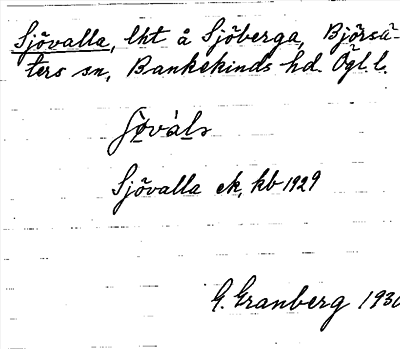 Sjövalla, lht å Sjöberga, Björsä-
ters sn, Bankekinds hd. Ögl. l.
Sjövalla ek, kb 1929
G. Granberg 1930